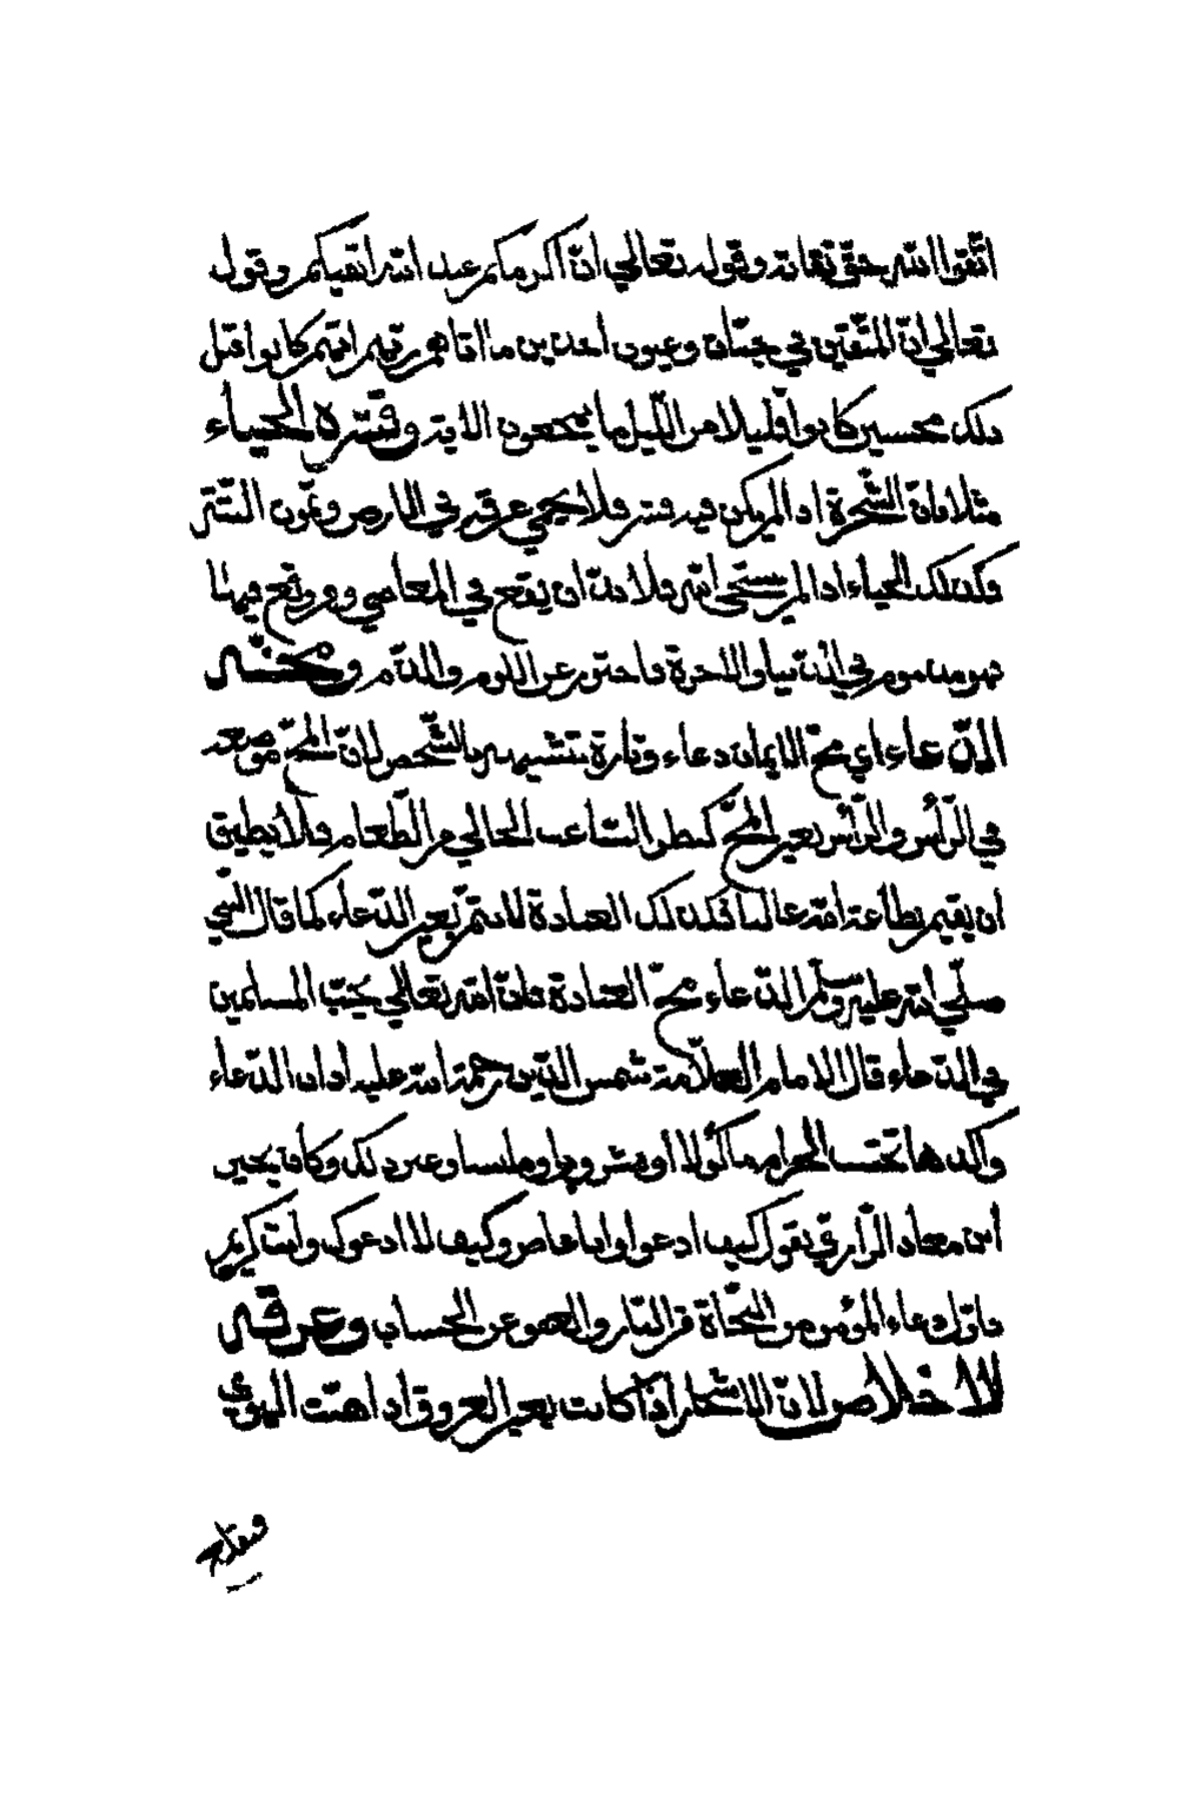 اتقوا الله حق تقاته وقوله تعالي ان اكرمكم عند الله اتقيكم وقول
تعالي ان المتّقين في جنّات وعيون اخذين ما اتاهم ربّهم انّهم كانوا قبل
ذلك محسنين كانوا قليلا من اللّيل ما يهجعون الاية وقشره الحياء
مثلا فانّ الشّجرة اذا لم يكن فيه قشر فلا يحيي عرقه في الارض وتمون الشّتر
وكذلك الحياء اذا لم يستحي الله فلا بدّ ان يقع في المعاصي ووو وقع فيها
فهو مذموم في الدّنيا والاخرة فاحترز عن اللّوم والذّم ومخّه
الدّعاء اي مخّ الايمان دعاء وتارة تشبيهه بالشّخص لانّ المخّ موضعه
في الرّأس والرّأس بغير المخّ كبطن الشّاعب الخالي من الطّعام فلا يطيق
ان يقيم بطاعة الله غالبا فكذلك العبادة لا يتمّ بغير الدّعاء كما قال النّبي
صلّي الله عليه وسلّم الدّعاء مخّ العبادة فانّ الله تعالي يحبّ المسلمين
في الدّعاء قال الامام العلّامة شمس الدّين رحمة الله عليه اداب الدّعاء
واكدها تجنّب الحرام مأكولا او مشروبا وملبسا وغير ذلك وكان يحيى
ابن معاذ الرّازيّ يقول كيف ادعوا وانا عاص وكيف لا ادعوك وانت كريم
فاوّل دعاء المؤمن من النّجاة من النّار والعفو عن الحساب وعرقه
الاخلاص لانّ الاشجار اذا كانت بغير العروق اذا هبّت الهوي